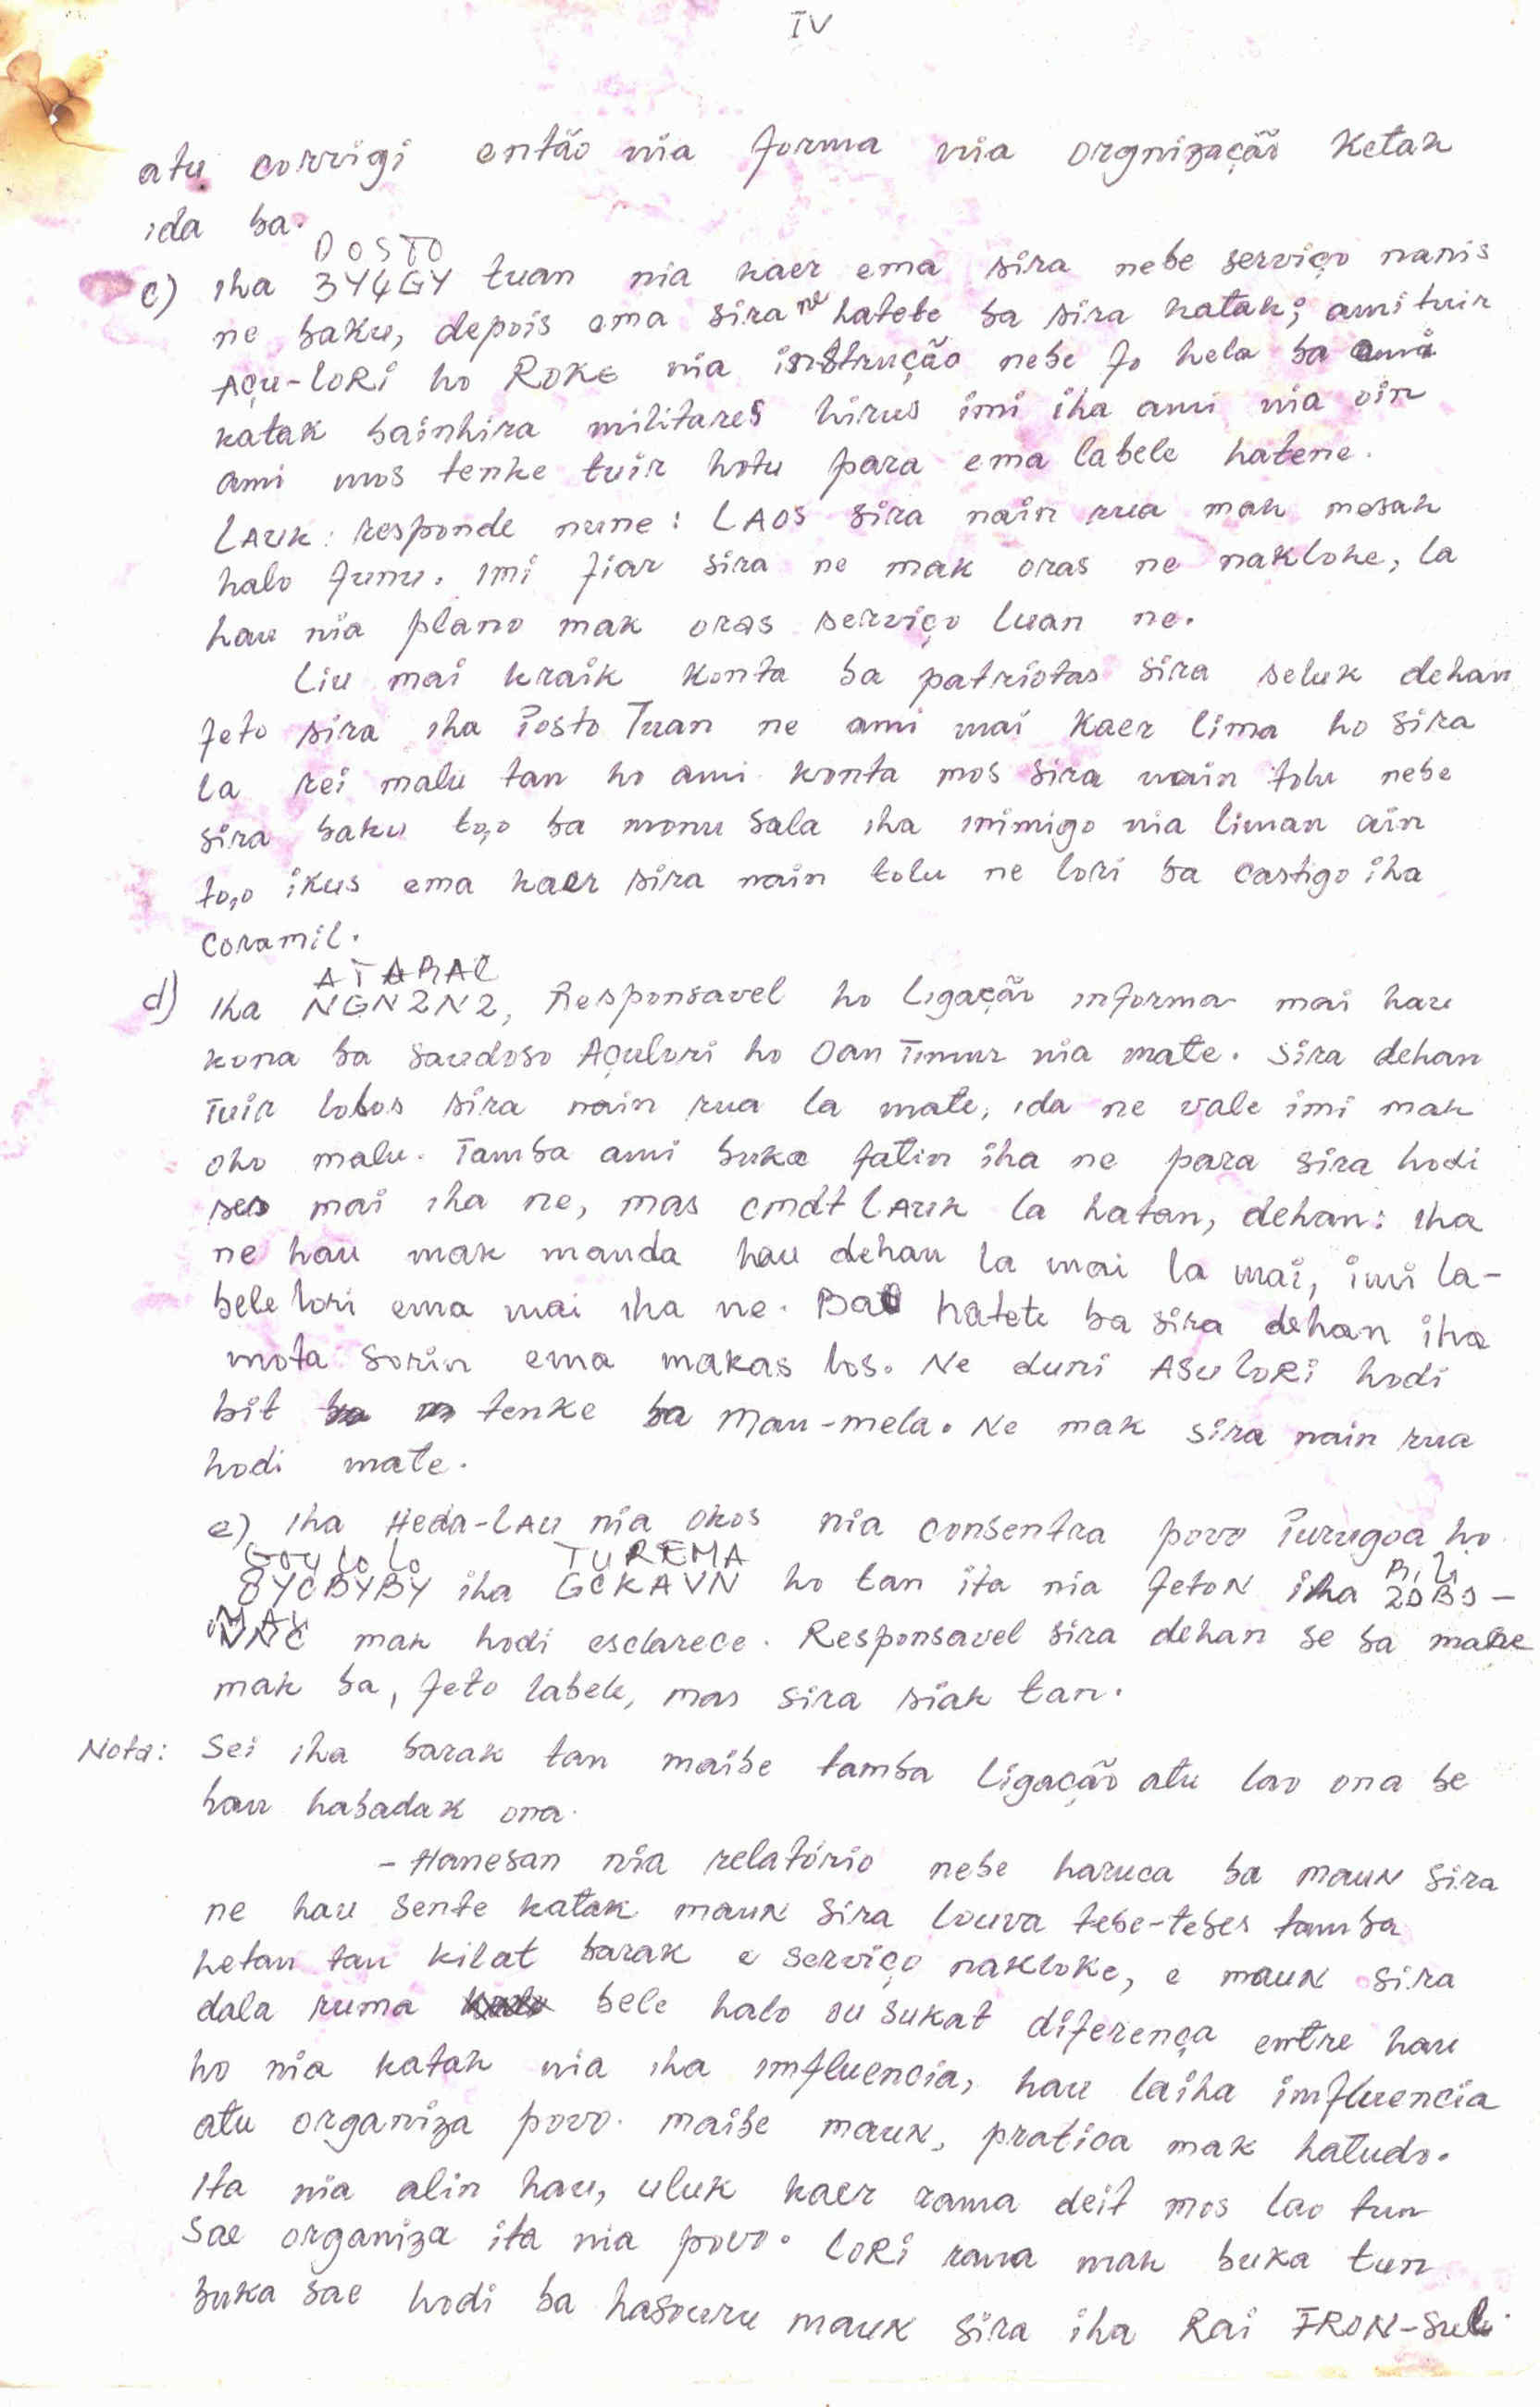 IV
atu corrigi então nia forma nia orgnização Ketak
ida ba.
POSTO
c) iha 3Y4GY tuan nia kaer ema sira nebe serviço nanis
ne baku, depois ema sira ne hatete ba sira katak; ami tuir
Açu-LORI ho ROKE nia instrução nebe fo hela ba ami
katak bainhira militares hirus imi iha ami nia oin
ami mos tenke tuir hotu para ema labele hatene.
LAUK: responde nune: LAOS sira nain rua mak mesak
halo funu. imi fiar sira ne mak oras ne nakloke, la
hau nia plano mak oras serviço luan ne.
Liu mai kraik Konta ba patriotas sira seluk dehan
feto sira iha Posto Tuan ne ami mai Kaer lima ho sira
la rei malu tan ho ami konta mos sira nain tolu nebe
sira baku to,o ba monu sala iha inimigo nia liman ain
to,o ikus ema kaer sira nain tolu ne lori ba castigo iha
coramil.
ATABAE
d) Iha NGN2N2, Responsavel ho Ligação informa mai hau
kona ba saudoso Açulori ho Oan Timur nia mate. Sira dehan
Tuir lolos sira nain rua la mate, ida ne vale imi mak
oho malu. Tamba ami buka fatin iha ne para sira hodi
ses mai iha ne, mas cmdt LAUK la hatan, dehan: iha
ne hau mak manda hau dehan la mai la mai, imi la-
bele lori ema mai iha ne. Ba hatete ba sira dehan iha
mota sorin ema makas los. Ne duni ASU LORI hodi
bit tenke ba Mau-mela. Ne mak sira nain rua
hodi mate.
e) Iha Heda-LAU nia okos nia consentra povo Purugoa ho
GOULOLO TUREMA BILI
8YCBYBY iha GCKAVN ho tan ita nia feton iha 2DBD-
MAU
NNC mak hodi esclarece. Responsavel sira dehan se ba mane
mak ba, feto labele, mas sira siak tan.
Nota: Sei iha barak tan maibe tamba Ligação atu lao ona be
hau habadak ona.
- Hanesan nia relatório nebe haruca ba maun sira
ne hau sente katak maun sira louva tebe-tebes tamba
hetan tan kilat barak e serviço nakloke, e maun sira
dala ruma bele halo ou sukat diferença entre hau
ho nia katak nia iha imfluencia, hau laiha imfluencia
atu organiza povo. maibe maun, pratica mak hatudo.
Ita nia alin hau, uluk kaer rama deit mos lao tun
sae organiza ita nia povo. LORI rama mak buka tun
buka sae hodi ba hasouru maun sira iha Rai FRON-